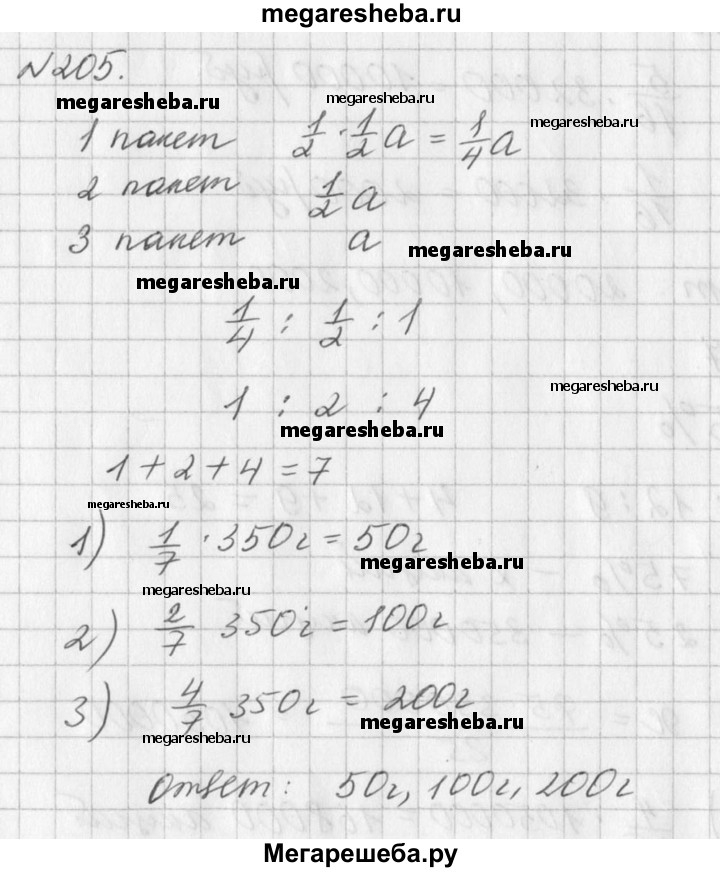 megaresheba.ru
№205.
megaresheba.ru
megaresheba.ru
1 пакет 1/2 · 1/2 a = 1/4 a
megaresheba.ru
2 пакет 1/2 a
3 пакет a
megaresheba.ru
megaresheba.ru
1/4 : 1/2 : 1
megaresheba.ru
1 : 2 : 4
megaresheba.ru
1+2+4=7
megaresheba.ru
1) 1/7 · 350г = 50г
megaresheba.ru
megaresheba.ru
2) 2/7 350г = 100г
3) 4/7 350г = 200г
megaresheba.ru
megaresheba.ru
Ответ: 50г, 100г, 200г
Мегарешеба.ру